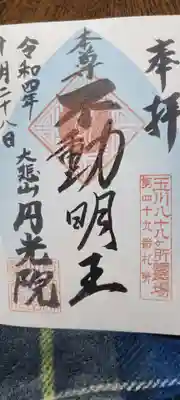 奉拝
玉川八十八ヶ所霊場
第四十九番札所
本尊
不動明王
令和四年
十月二十八日
大悲山
円光院